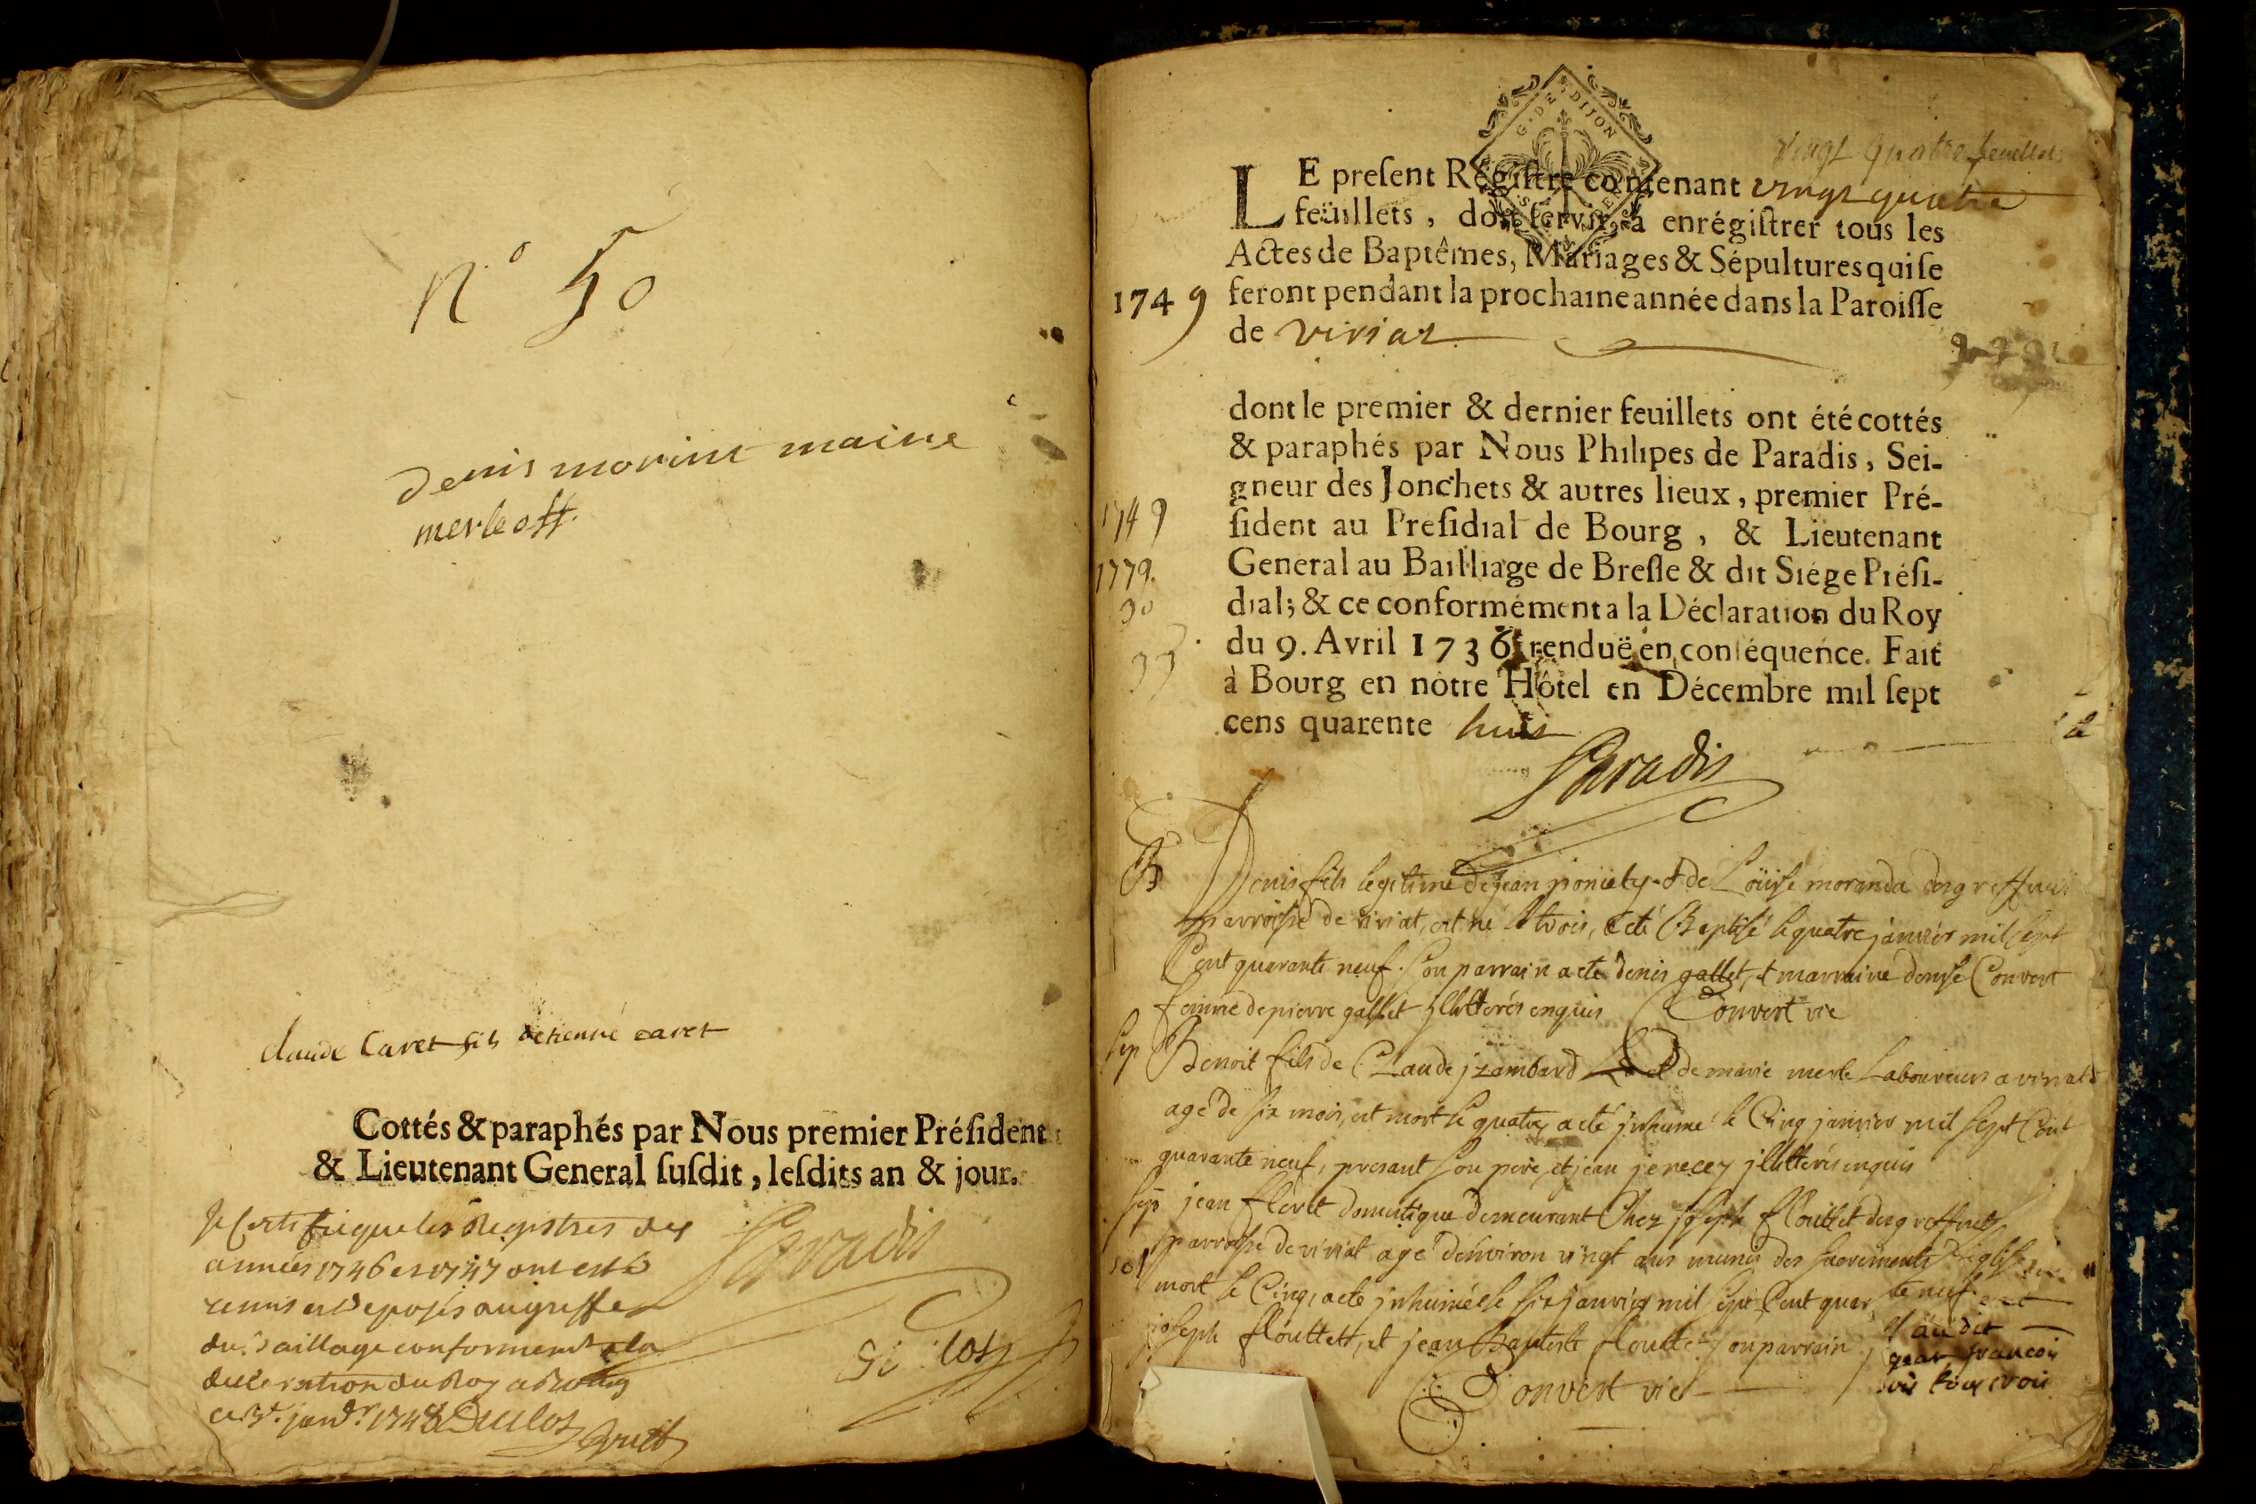 n° 50
denis morint maine
merle off.
Claude Caret fils detienne caret
Cottés & paraphés par Nous premier Préſident
& Lieutenant General ſuſdit, leſdits an & jour.
Je certifie que les Registres des
années 1746 et 1747 ont esté
remis et deposés au greffe
du Baillage conformement a la
declaration du Roy a Bourg
ce janvr. 1748 Duclos
Paradis
G. DE DIJON
vingt quatre feuillets
LE preſent Régiſtre contenant vingt quatre
feüillets, doit ſervir à enrégiſtrer tous les
Actes de Baptêmes, Mariages & Sépultures qui ſe
1749 feront pendant la prochaine année dans la Paroiſſe
de viriat
dont le premier & dernier feuillets ont été cottés
& paraphés par Nous Philipes de Paradis, Sei-
gneur des Jonchets & autres lieux, premier Pré-
1749 ſident au Préſidial de Bourg, & Lieutenant
1779. General au Bailliage de Breſſe & dit Siége Préſi-
30 dial; & ce conformément a la Déclaration du Roy
du 9. Avril 1736. renduë en conſéquence. Fait
à Bourg en nôtre Hôtel en Décembre mil ſept
cens quarente huit
Paradis
B Denis fils legitime de jean poncety & de Loüise moranda
parroisse de viriat, est né le trois, et eté Baptisé le quatre janvier mil sept
Cent quarante neuf. Son parrain a eté denis gallet, & marraine denise Convert
femme de pierre gallet jllitterés enquis Convert vic
Sep Benoit fils de Claude jzambard et de marie merle Laboureurs a viriat
agé de six mois, est mort le quatre, a eté jnhumé le Cinq janvier mil sept Cent
quarante neuf, presant son pere, et jean jenecey jllitterés enquis
Sep jean floret domestique demeurant Chez joseph flouttet
parroisse de viriat agé denviron vingt ans munis des sacrements
mort le Cinq, a eté jnhumé le six janvier mil sept Cent quar te neuf
joseph flouttet, et jean Baptiste flouttet son parrain
Convert vic